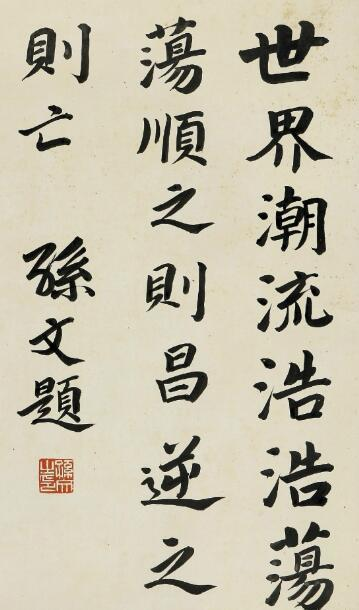 世界潮流浩浩蕩
蕩順之則昌逆之
則亡
孫文題
孫文之印